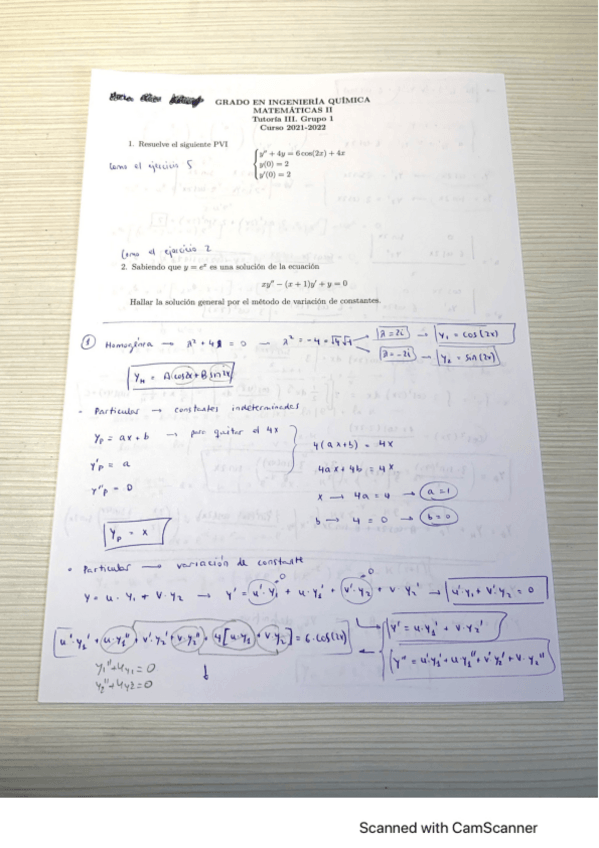 GRADO EN INGENIERÍA QUÍMICA
MATEMÁTICAS II
Tutoría III. Grupo 1
Curso 2021-2022
1. Resuelve el siguiente PVI
y'' + 4y = 6 cos(2x) + 4x
y(0) = 2
y'(0) = 2
Como el ejercicio 5
Como el ejercicio 2
2. Sabiendo que y = eˣ es una solución de la ecuación
xy'' − (x + 1)y' + y = 0
Hallar la solución general por el método de variación de constantes.
① Homogénea → λ² + 4 = 0 → λ² = -4 = √4 √-1
λ = 2i → y₁ = cos(2x)
λ = -2i → y₂ = sin(2x)
y_H = A cos2x + B sin2x
• Particular → constantes indeterminadas
y_p = ax + b → para quitar el 4x
y'_p = a
y''_p = 0
4(ax+b) = 4x
4ax + 4b = 4x
x → 4a = 4 → a = 1
b → 4 = 0 → b = 0
y_p = x
• Particular → variación de constante
y = u · y₁ + v · y₂ → y' = u' · y₁ + u · y₁' + v' · y₂ + v · y₂' → u' · y₁ + v' · y₂ = 0
0
0
[u' · y₁' + u · y₁'' + v' y₂' + v · y₂''] + 4[u · y₁ + v y₂] = 6 · cos(2x)
y' = u · y₁' + v · y₂'
y'' = u' y₁' + u · y₁'' + v' y₂' + v · y₂''
y₁'' + 4y₁ = 0
y₂'' + 4y2 = 0
Scanned with CamScanner